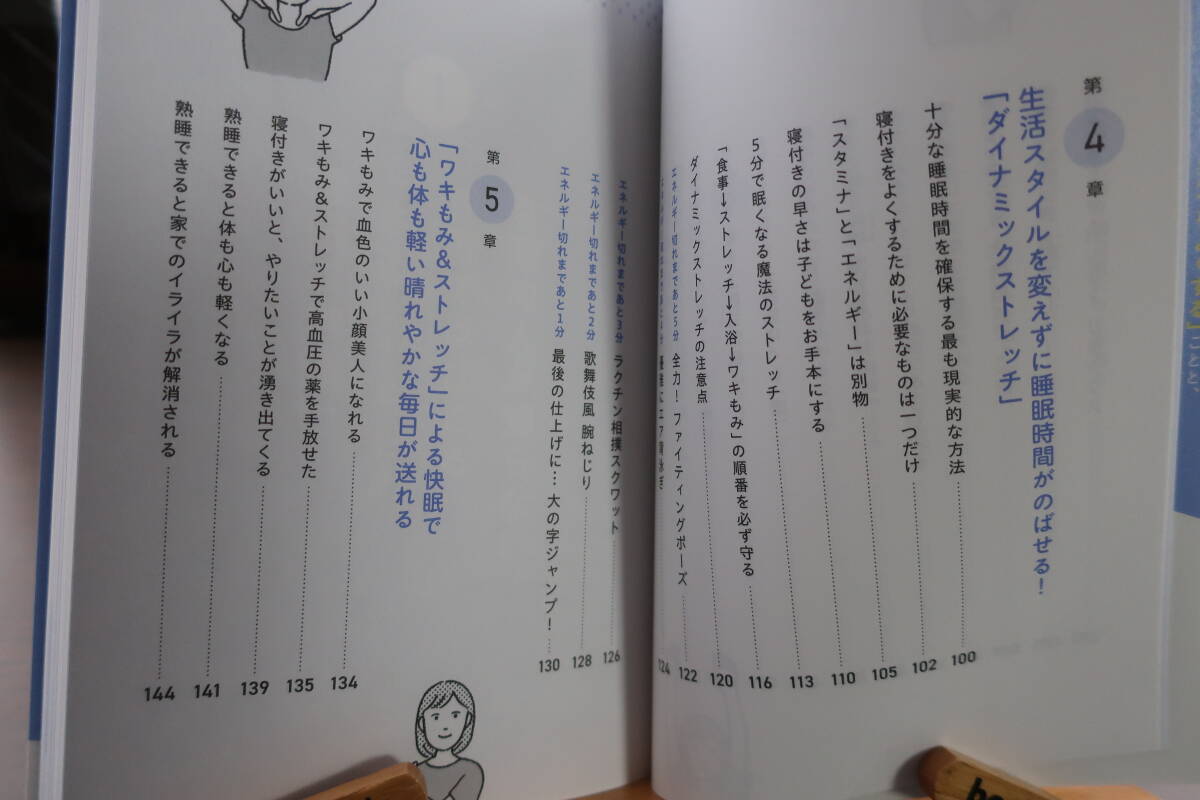 第4章
生活スタイルを変えずに睡眠時間がのばせる！
「ダイナミックストレッチ」
十分な睡眠時間を確保する最も現実的な方法 100
寝付きをよくするために必要なものは一つだけ 102
「スタミナ」と「エネルギー」は別物 105
寝付きの早さは子どもをお手本にする 110
5分で眠くなる魔法のストレッチ 113
「食事→ストレッチ→入浴→ワキもみ」の順番を必ず守る 116
ダイナミックストレッチの注意点 120
エネルギー切れまであと5分 全力！ファイティングポーズ 122
エネルギー切れまであと4分 124
エネルギー切れまであと3分 ラクチン相撲スクワット 126
エネルギー切れまであと2分 歌舞伎風 腕ねじり 128
エネルギー切れまであと1分 最後の仕上げに…大の字ジャンプ！ 130
第5章
「ワキもみ&ストレッチ」による快眠で
心も体も軽い晴れやかな毎日が送れる
ワキもみで血色のいい小顔美人になれる 134
ワキもみ&ストレッチで高血圧の薬を手放せた 135
寝付きがいいと、やりたいことが湧き出てくる 139
熟睡できると体も心も軽くなる 141
熟睡できると家でのイライラが解消される 144